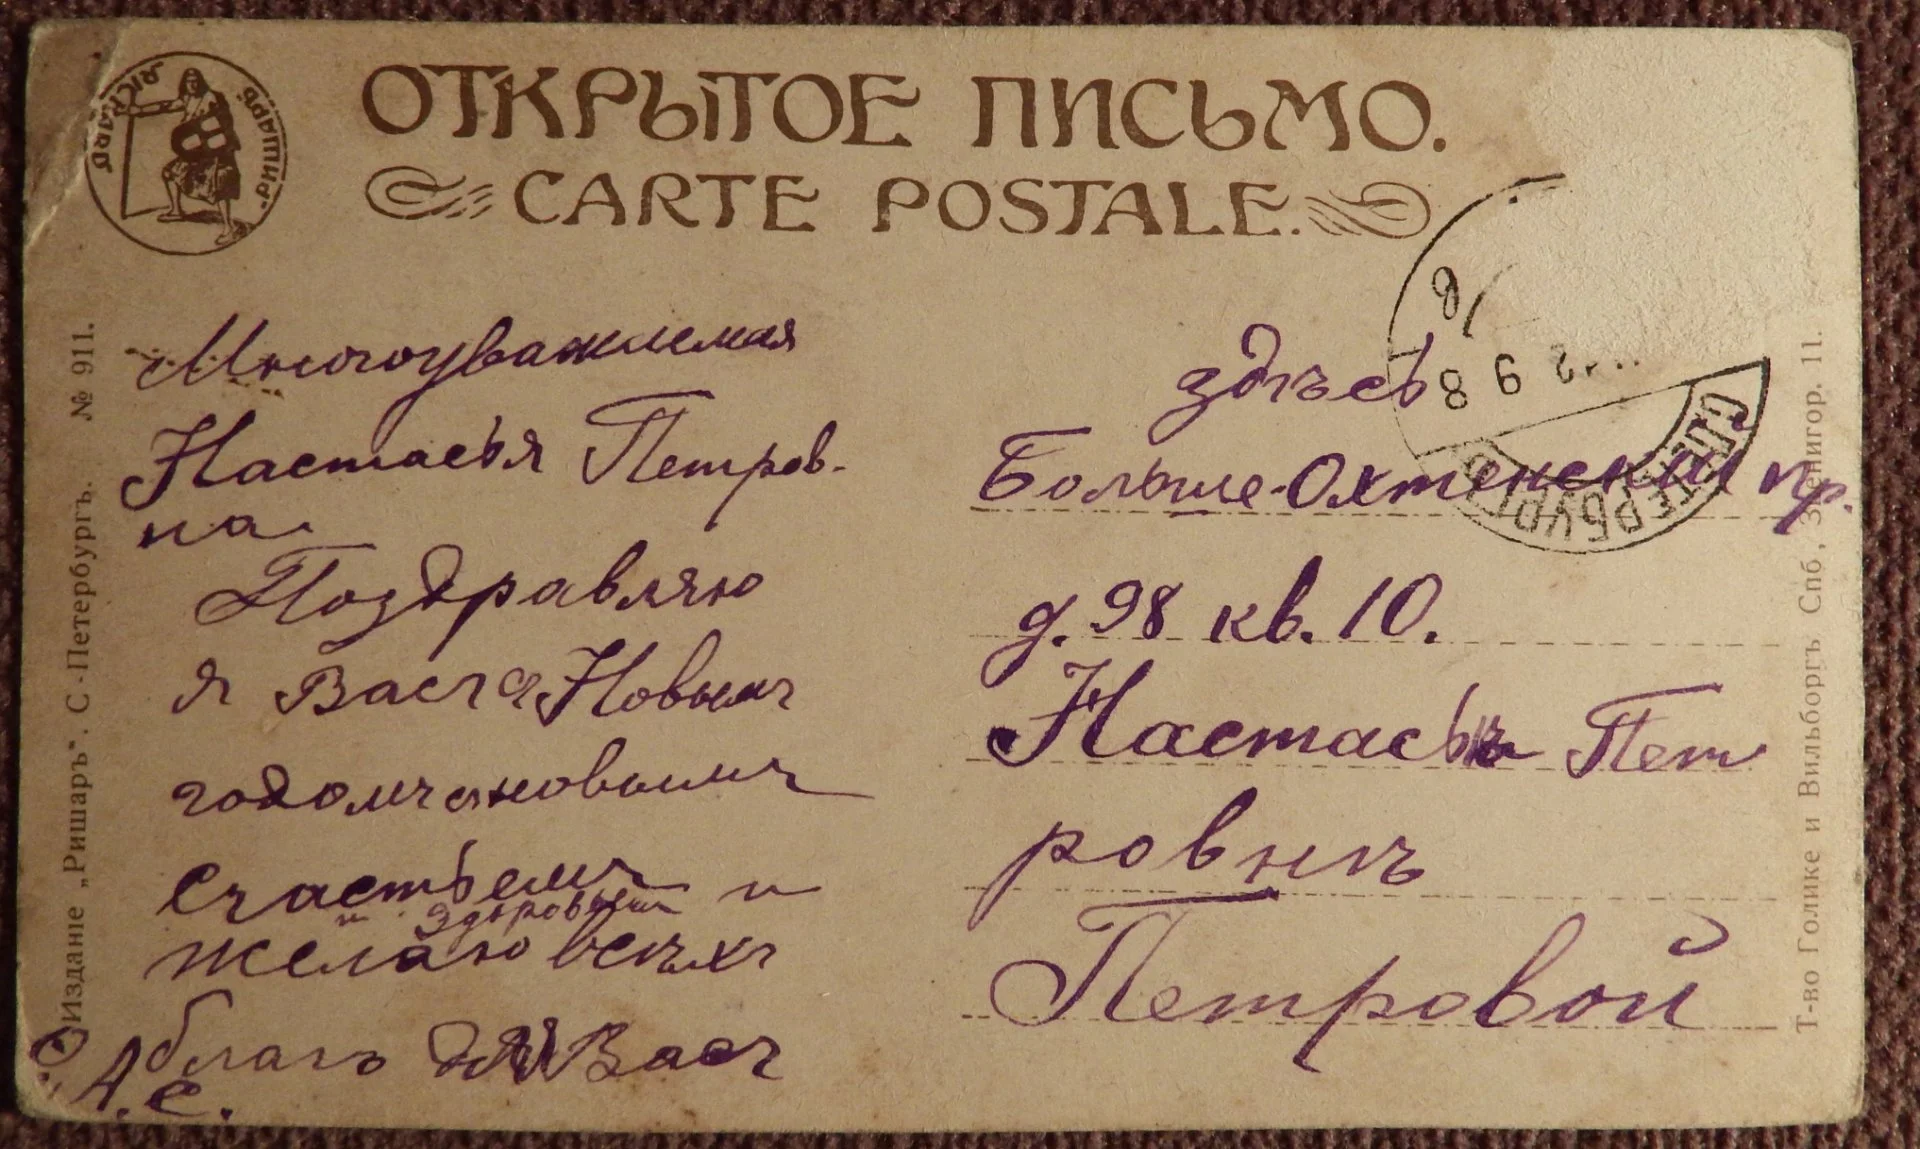 ОТКРЫТОЕ ПИСЬМО.
CARTE POSTALE.
„РИШАРЪ“
„RICHARD“
Многоуважаемая
Настасья Петров-
на
Поздравляю
я Васъ съ Новымъ
годомъ съ новымъ
счастьемъ и
и здоровьемъ
желаю всѣхъ
благъ для Васъ
А. С.
здѣсь
Больше-Охтенский пр.
д. 98 кв. 10.
Настасьѣ Пет
ровнѣ
Петровой
С.ПЕТЕРБУРГЪ
Изданіе „Ришаръ“. С.-Петербургъ. № 911.
Т-во Голике и Вильборгъ. Спб., Звенигор. 11.